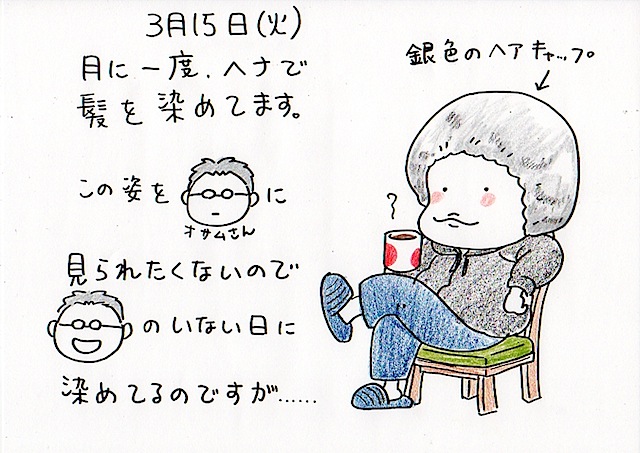 3月15日(火)
月に一度、ヘナで
髪を染めてます。
銀色のヘアキャップ
この姿を に
オサムさん
見られたくないので
のいない日に
染めてるのですが……
?